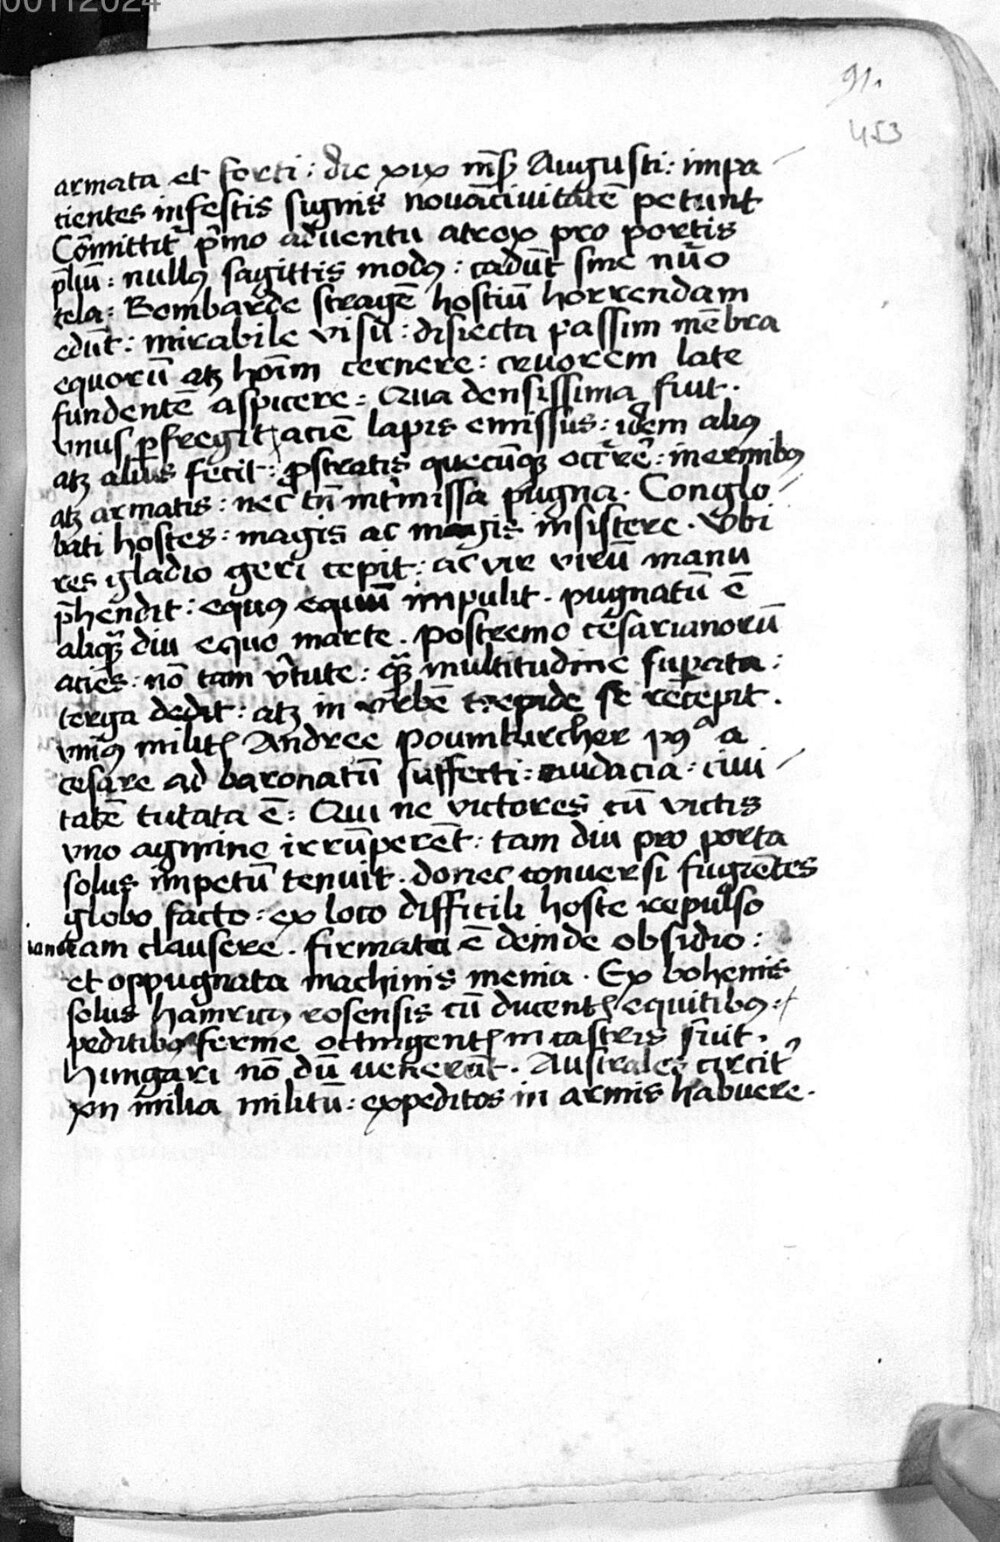 00112024
91.
453
armata et forti : die xix mẽs̃ Augusti : impa
tientes infestis signis nouãciuitatẽ petunt
Cõmittit᷑ p̃mo aduentu atrox pro portis
p̃liũ : nullꝰ sagittis modꝰ : cadũt sine nũo
tela : Bombarde stragẽ hostiũ horrendam
edũt : mirabile visu : disiecta passim mẽbra
equorũ atꝫ hoĩm cernere : cruorem late
fundentẽ aspicere : Qua densissima fuit .
vnus ꝑfregit aciẽ lapis emissus : idem aliꝰ
atꝫ alius fecit : ꝓstratis quecũqꝫ occr̃rẽ : inermibꝰ
atꝫ armatis : nec tñ int̃missa pugna . Conglo
bati hostes : magis ac magis insistere . Vbi
res gladio geri cepit : ac vir virũ manu
p̃hendit : equꝰ equũ impulit . pugnatũ ẽ
aliqꝫ̃ diu equo marte . postremo cesarianorũ
acies : nõ tam ṽtute : qꝫ̃ multitudine suꝑata :
terga dedit : atꝫ in vrbẽ trepide se recepit .
vniꝰ militꝭ Andree poumkircher pꝰᵃ a
cesare ad baronatũ suffecti : audacia : ciui
tatẽ tutata ẽ : Qui ne victores cũ victis
vno agmine irrũperẽt : tam diu pro porta
solus impetũ tenuit . donec conuersi fugiẽtes
globo facto : ex loco difficili hoste repulso
ianuam clausere . firmata ẽ deinde obsidio :
et oppugnata machinis menia . Ex bohemis
solus hainricꝰ rosensis cũ ducentꝭ equitibꝰ :
peditibꝰ ferme octingentꝭ in castris fuit .
Hungari nõ dũ venerũt . Australes circit᷑
xii milia militũ : expeditos in armis habuere .